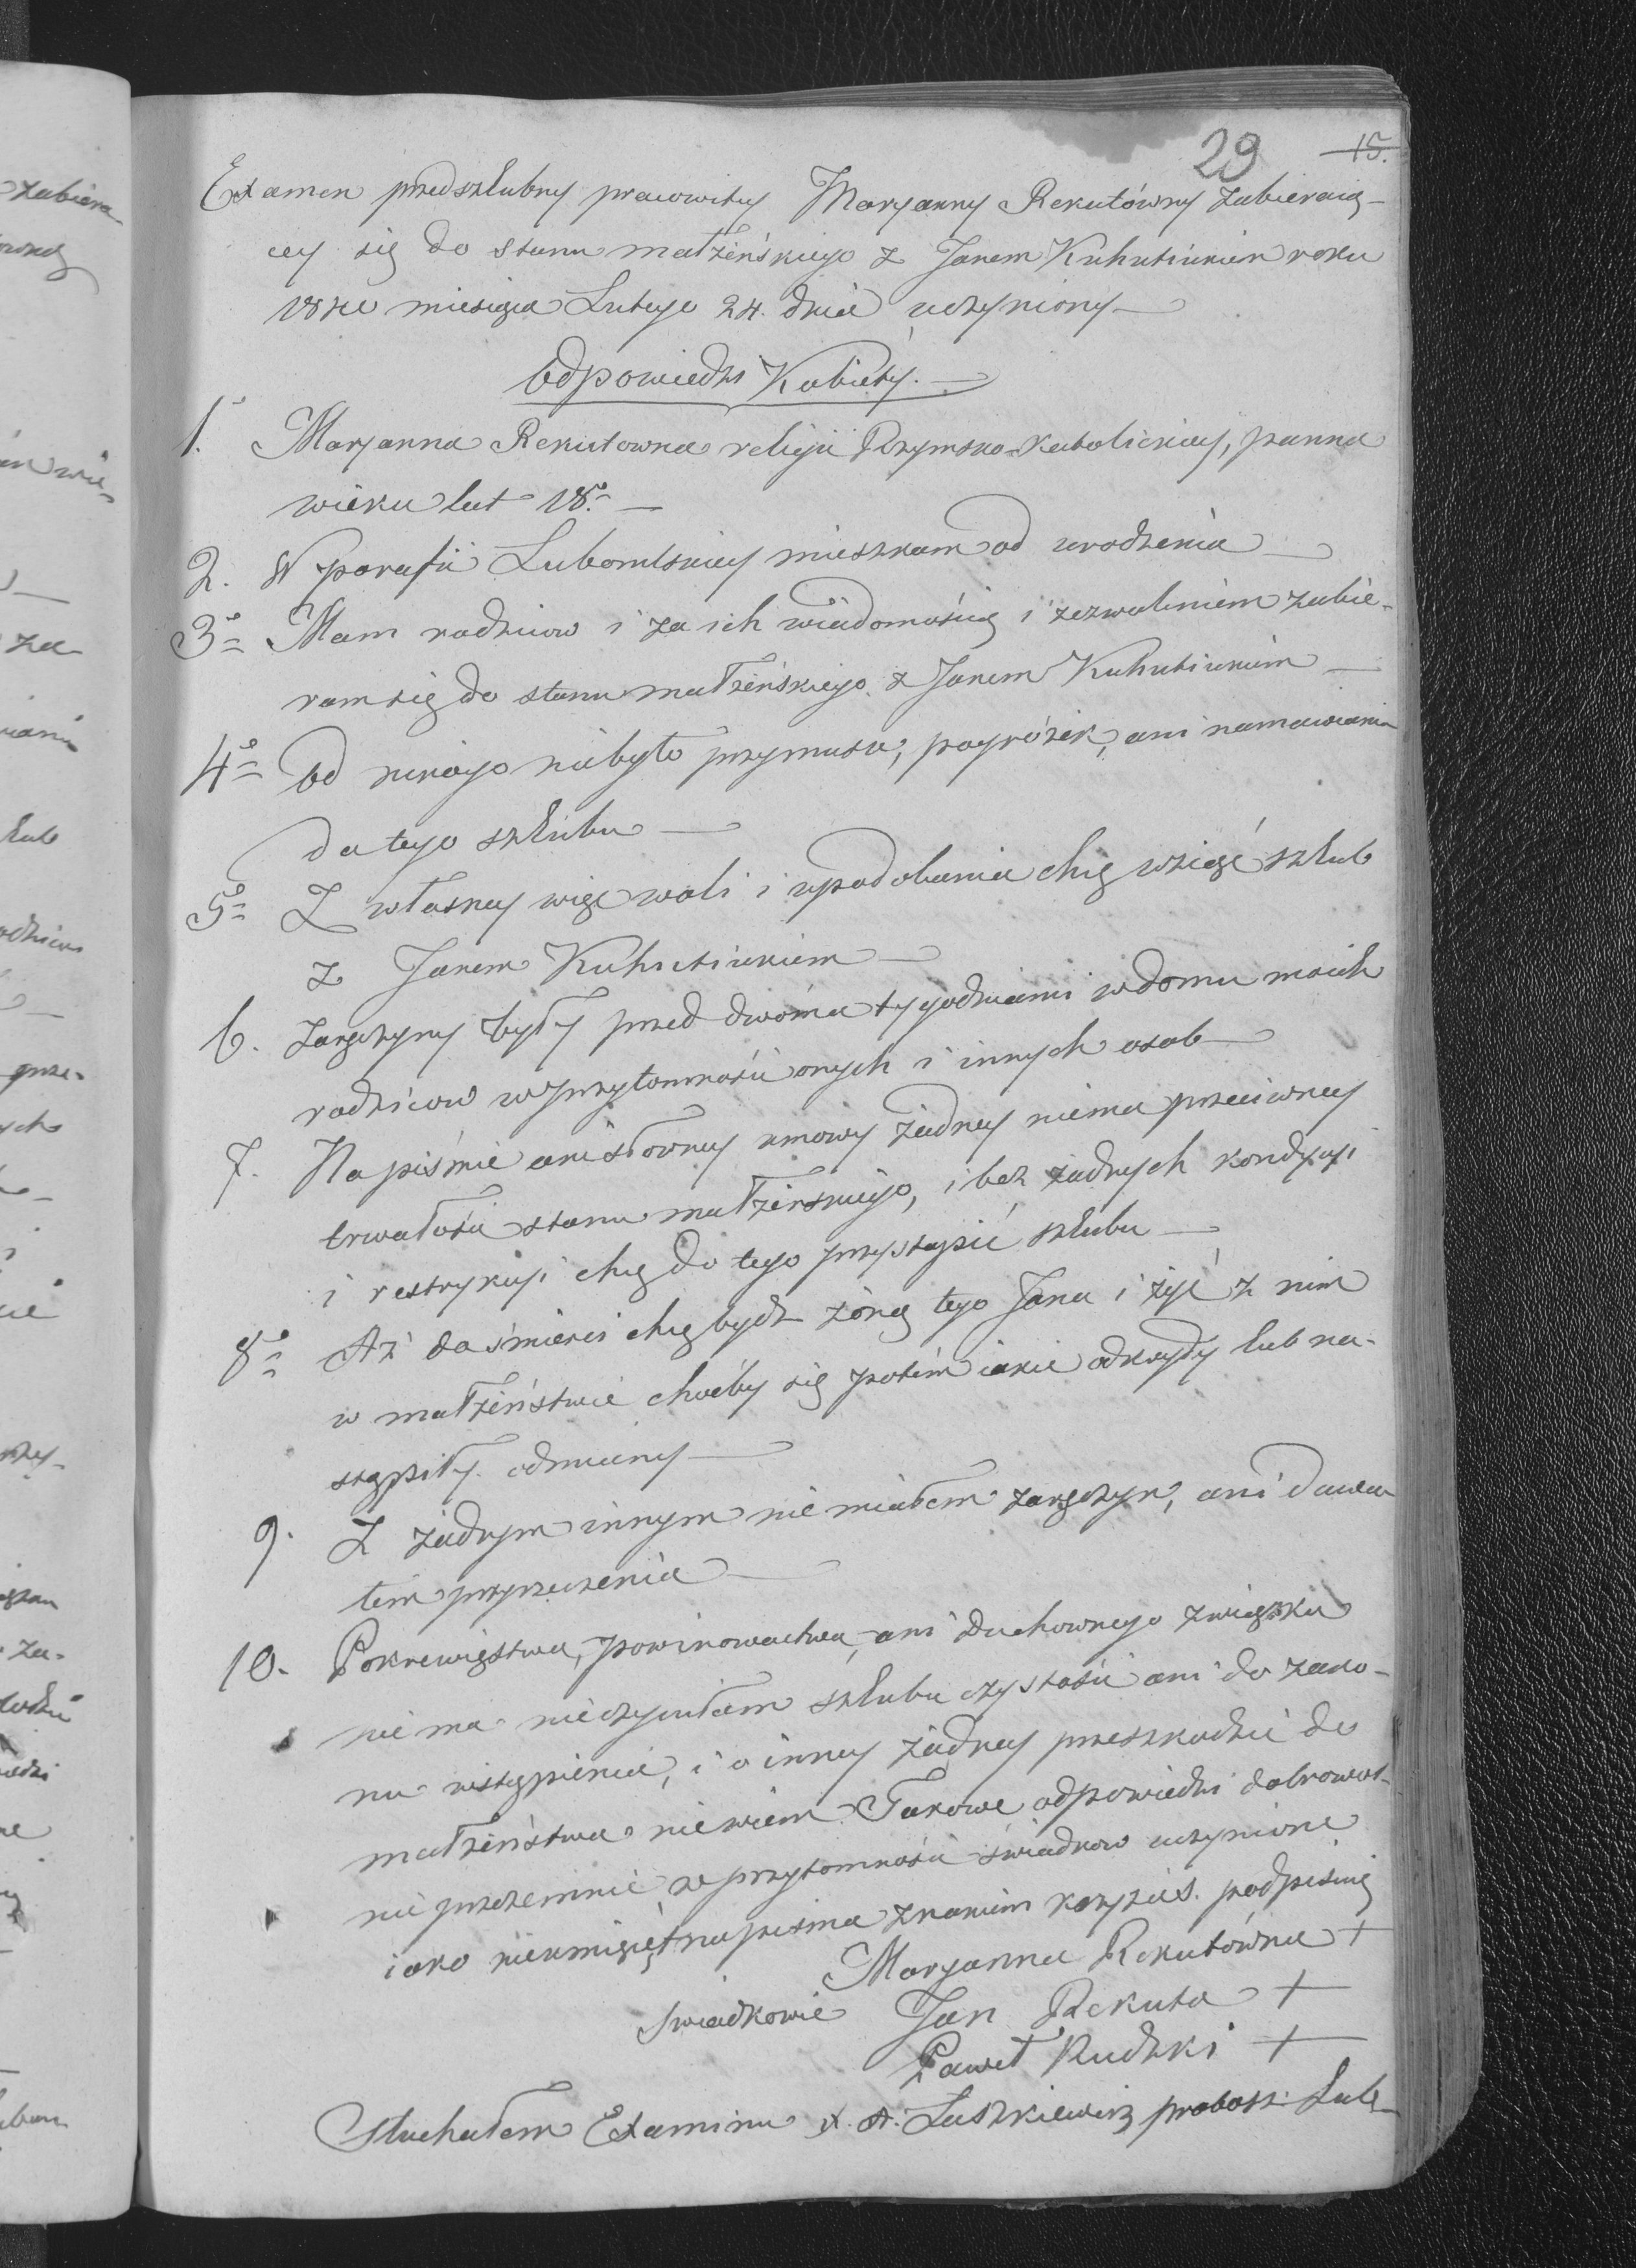 29 15.
Examen przedszlubny pracowitey Maryanny Rekutówny zabieraią-
cey się do stanu małżeńskiego z Janem Kuhutiukiem roku
miesiąca Lutego 24. dnia uczyniony
Odpowiedzi Kobiéty.
1. Maryanna Rekutowna religii Rzymsko-Katolickiey, panna
wieku lat 18.
2. W parafii Lubomlskiey mieszkam od urodzenia
3. Mam rodzicow i za ich wiadomością i zezwoleniem zabie-
ram się do stanu małżeńskiego z Janem Kuhutiukiem
4. Od nikogo niebyło przymusu, pogróżek, ani namawiania
do tego szlubu
5. Z własney więc woli i upodobania chcę wziąść szlub
z Janem Kuhutiukiem
6. Zaręczyny były przed dwóma tygodniami w domu moich
rodzicow w przytomności onych i innych osob
7. Na piśmie ani słowney umowy żadney niema przeciwney
trwałości stanu małżeńskiego, i bez żadnych kondycyi
i restrykcyi chcę do tego przystąpić szlubu
8. Aż do śmierci chcę bydź żoną tego Jana i żyć z nim
w małżeństwie choćby się potém iakie odkryły lub na-
stąpiły odmiany
9. Z żadnym innym nie miałam zaręczyn, ani dawa-
łam przyrzeczenia
10. Pokrewięstwa, powinowactwa, ani duchownego związku
niema nieczyniłam szlubu czystości ani do zako-
nu wstąpienia, i o inney żadney przeszkodzie do
małżeństwa niewiem. Takowe odpowiedzi dobrowol-
nie przezemnie w przytomności świadkow uczynione
iako nieumieiętna pisma znakiem krzyża S. podpisuię
Maryanna Rekutówna +
Swiadkowie Jan Rekuta +
Paweł Rudzki +
Słuchałem Examinu X. A. Laszkiewicz probosz: Lub-